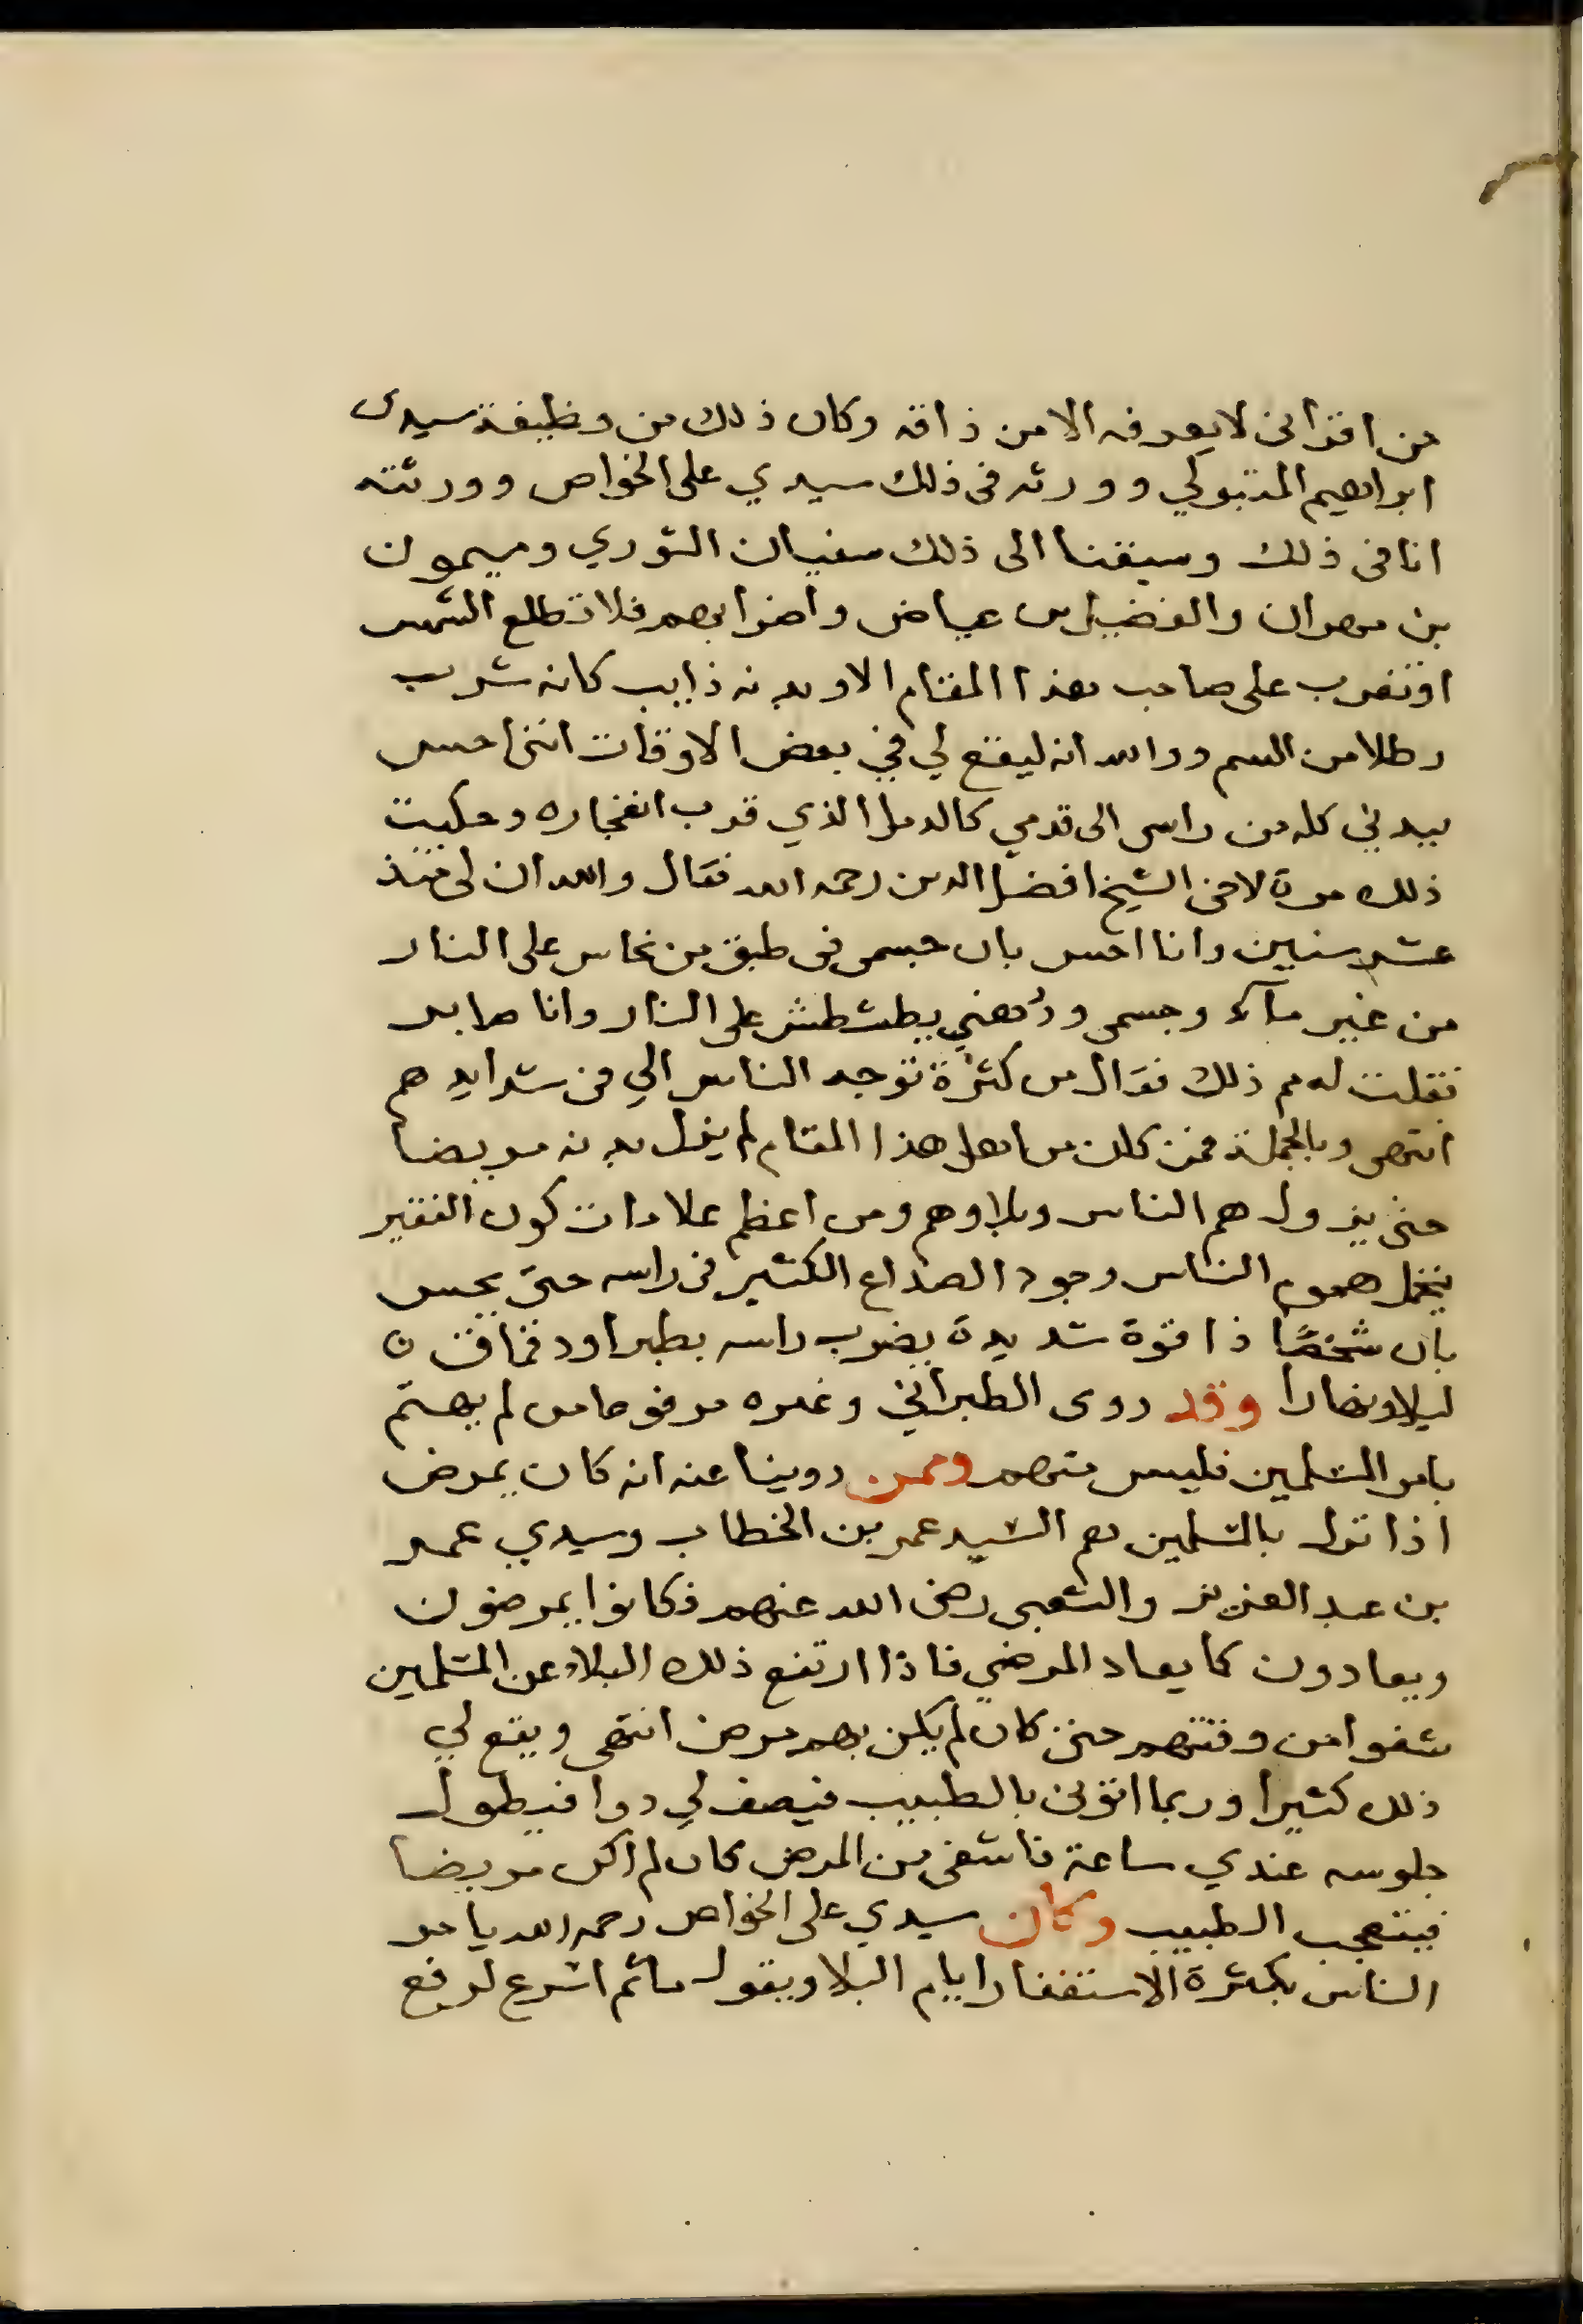 من اقرانى لايعرفه الا من ذاقه وكان ذلك من وظيفة سيدى
ابراهيم المتبولي وورثه فى ذلك سيدي على الخواص وورثته
انا فى ذلك وسبقنا الى ذلك سفيان الثوري وميمون
بن مهران والفضيل بن عياض واضرابهم فلا تطلع الشمس
او تغرب على صاحب هذا المقام الا وبدنه ذايب كانه شرب
رطلا من السم ووالله انه ليقع لي في بعض الاوقات اننى احس
ببدني كله من راسى الى قدمي كالدمل الذي قرب انفجاره وحكيت
ذلك مرة لاخى الشيخ افضل الدين رحمه الله فقال والله ان لى منذ
عشر سنين وانا احس بان جسمى فى طبق من نحاس على النار
من غير ماء وجسمى ودهني يطشطش على النار وانا صابر
فقلت له مم ذلك فقال من كثرة توجه الناس الي فى شدايدهم
انتهى وبالجملة فمن كان من اهل هذا المقام لم يزل بدنه مريضا
حتى يزول هم الناس وبلاوهم ومن اعظم علامات كون الفقير
يتحمل هموم الناس وجود الصداع الكثير فى راسه حتى يحس
بان شخصًا ذا قوة شديدة يضرب راسه بطبر او دقماق
ليلا ونهارا وقد روى الطبراني وغيره مرفوعا من لم يهتم
بامر المسلمين فليس منهم وممن روينا عنه انه كان يمرض
اذا نزل بالمسلمين هم السيد عمر بن الخطاب وسيدي عمر
بن عبد العزيز والشعبى رضى الله عنهم فكانوا يمرضون
ويعادون كما يعاد المرضي فاذا ارتفع ذلك البلاء عن المسلمين
شفوا من وقتهم حتى كان لم يكن بهم مرض انتهى ويقع لي
ذلك كثيرا وربما اتونى بالطبيب فيصف لي دوا فيطول
جلوسه عندي ساعة فاشفى من المرض كان لم اكن مريضا
فيتعجب الطبيب وكان سيدي على الخواص رحمه الله يامر
الناس بكثرة الاستغفار ايام البلا ويقول ما ثم اسرع لرفع